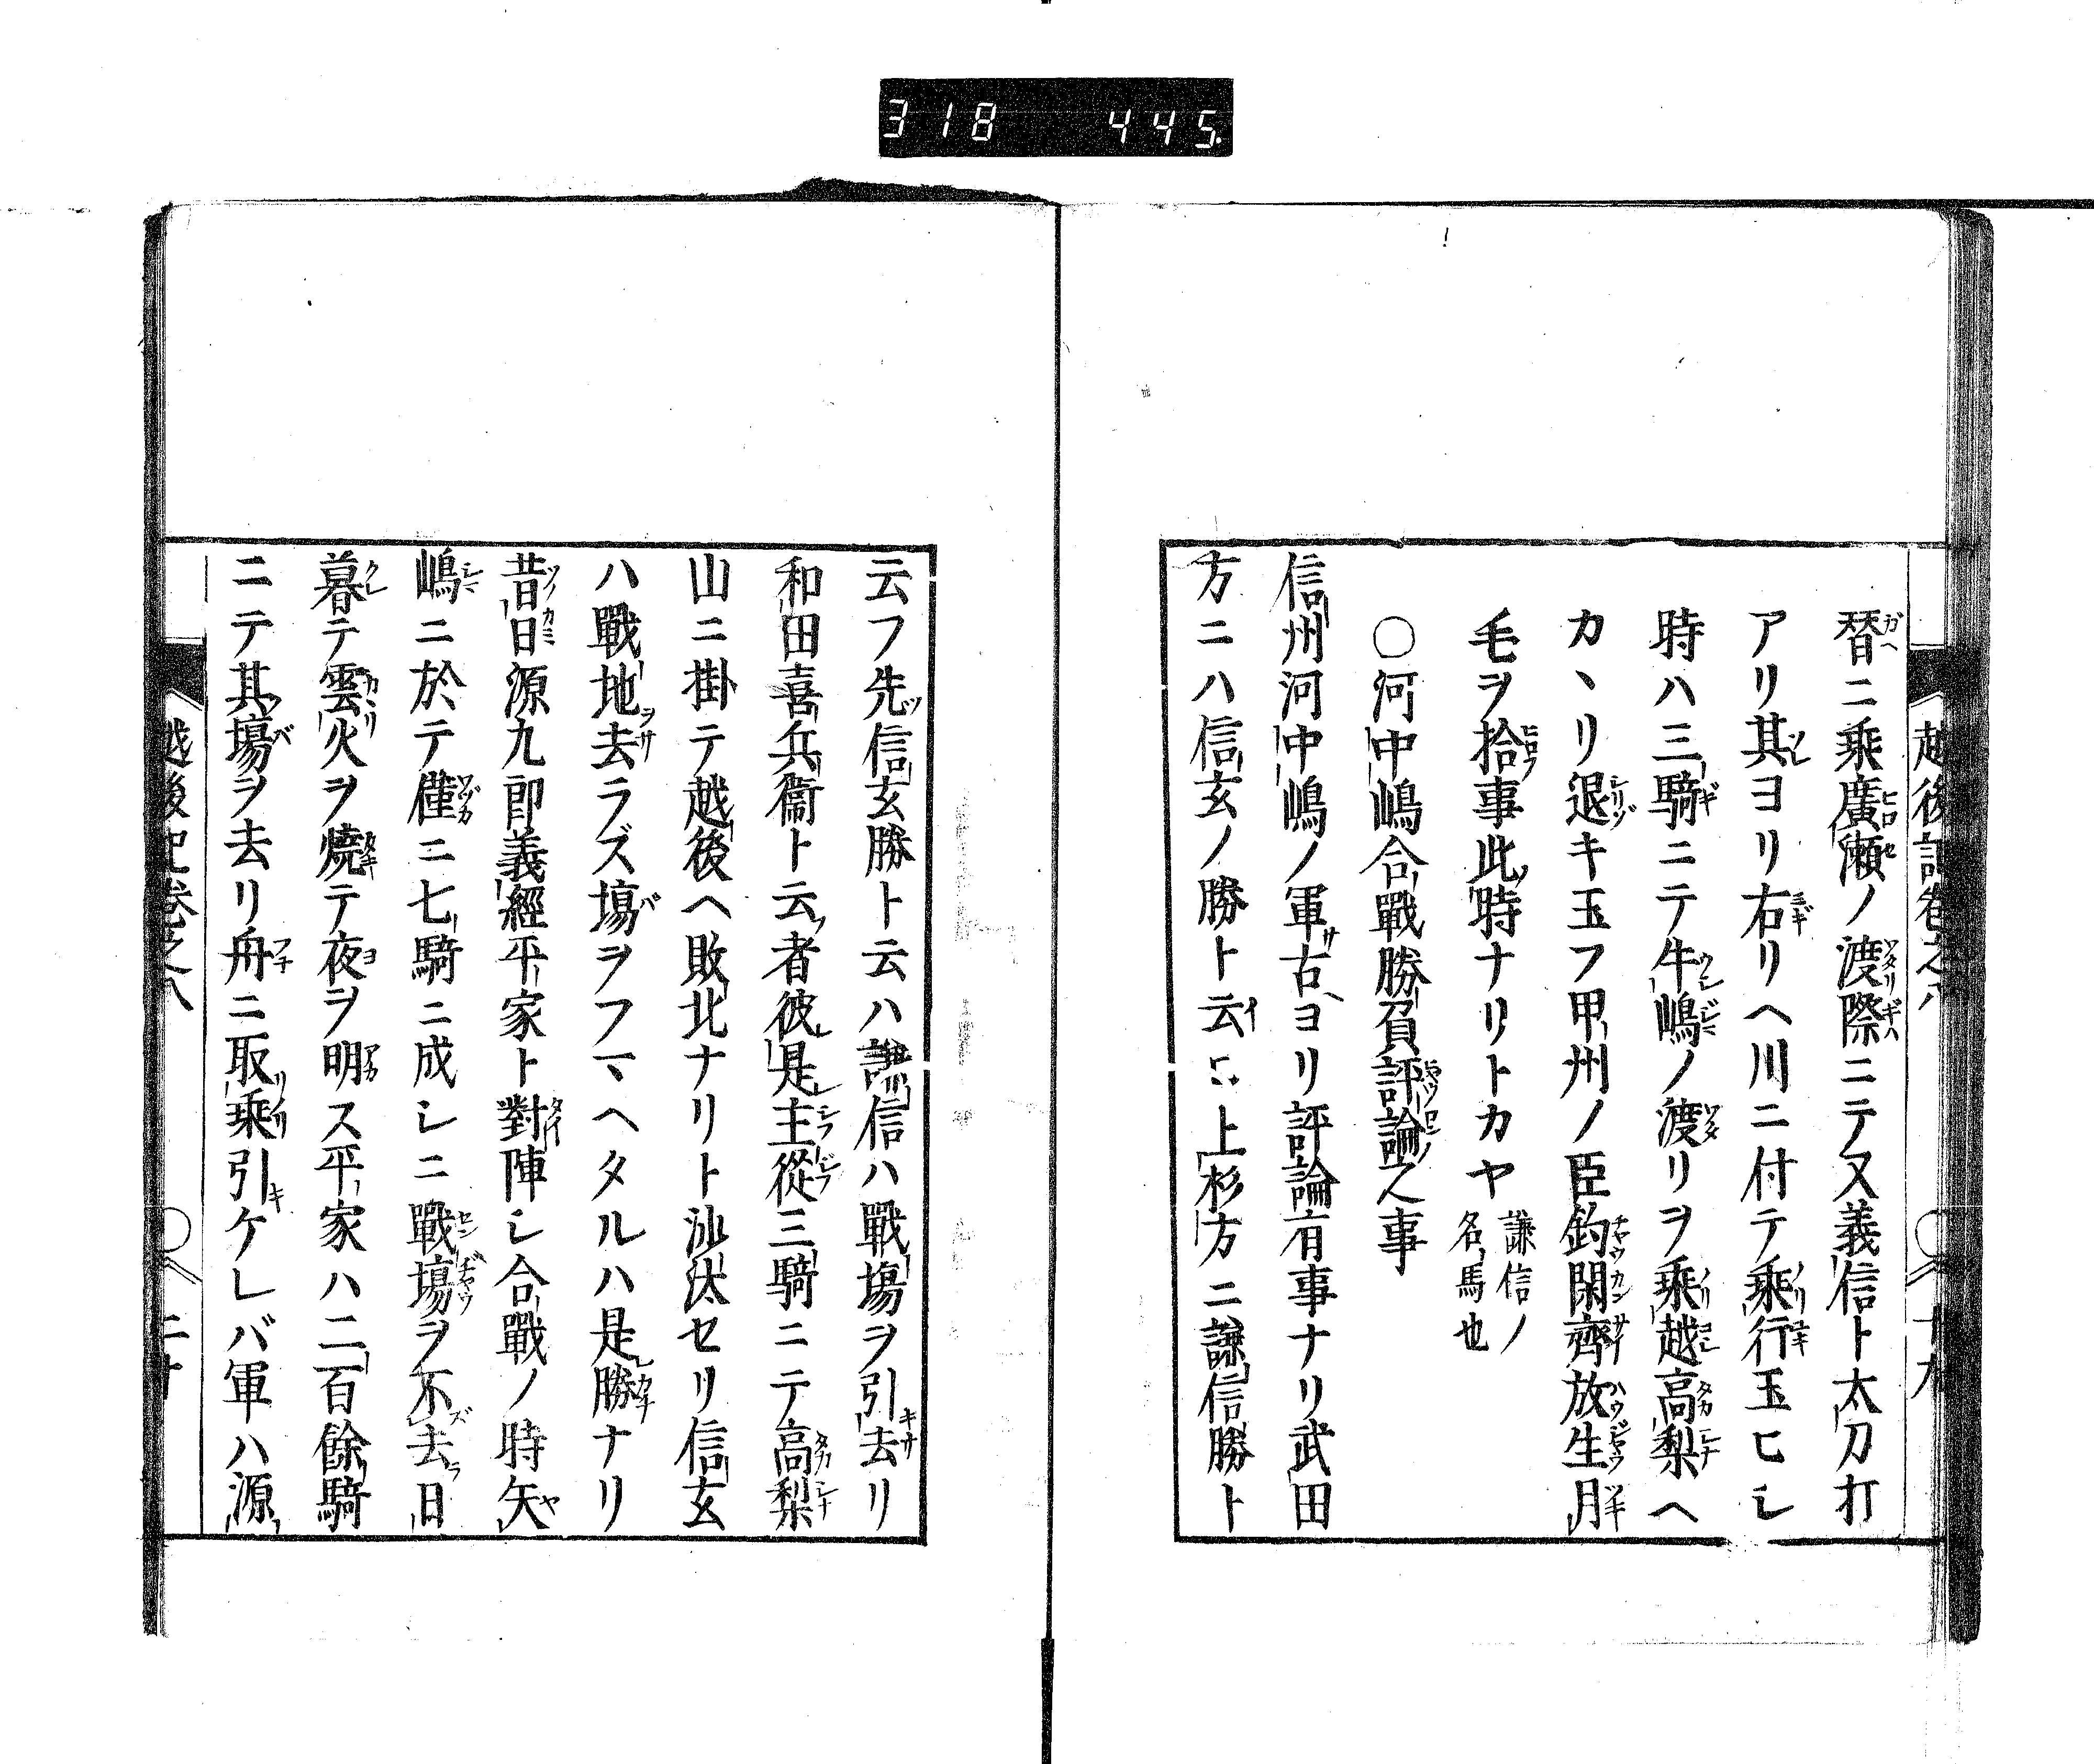 318 445.
越後記卷之八 十九
替ニ乘廣瀬ノ渡際ニテ又義信ト太刀打
アリ其ヨリ右リヘ川ニ付テ乘行玉ヒシ
時ハ三騎ニテ牛嶋ノ渡リヲ乘越高梨ヘ
カヽリ退キ玉フ甲州ノ臣釣閑齋放生月
毛ヲ拾事此時ナリトカヤ謙信ノ名馬也
○河中嶋合戰勝負評論之事
信州河中嶋ノ軍古ヨリ評論有事ナリ武田
方ニハ信玄ノ勝ト云上杉方ニ謙信勝ト
云フ先信玄勝ト云ハ謙信ハ戰場ヲ引去リ
和田喜兵衞ト云者彼是主從三騎ニテ高梨
山ニ掛テ越後ヘ敗北ナリト沙汰セリ信玄
ハ戰地去ラズ塲ヲフマヘタルハ是勝ナリ
昔日源九郎義經平家ト對陣シ合戰ノ時矢
嶋ニ於テ僅ニ七騎ニ成シニ戰塲ヲ不去日
暮テ雲火ヲ燒テ夜ヲ明ス平家ハ二百餘騎
ニテ其塲ヲ去リ舟ニ取乘引ケレバ軍ハ源
越後記卷之八 二十